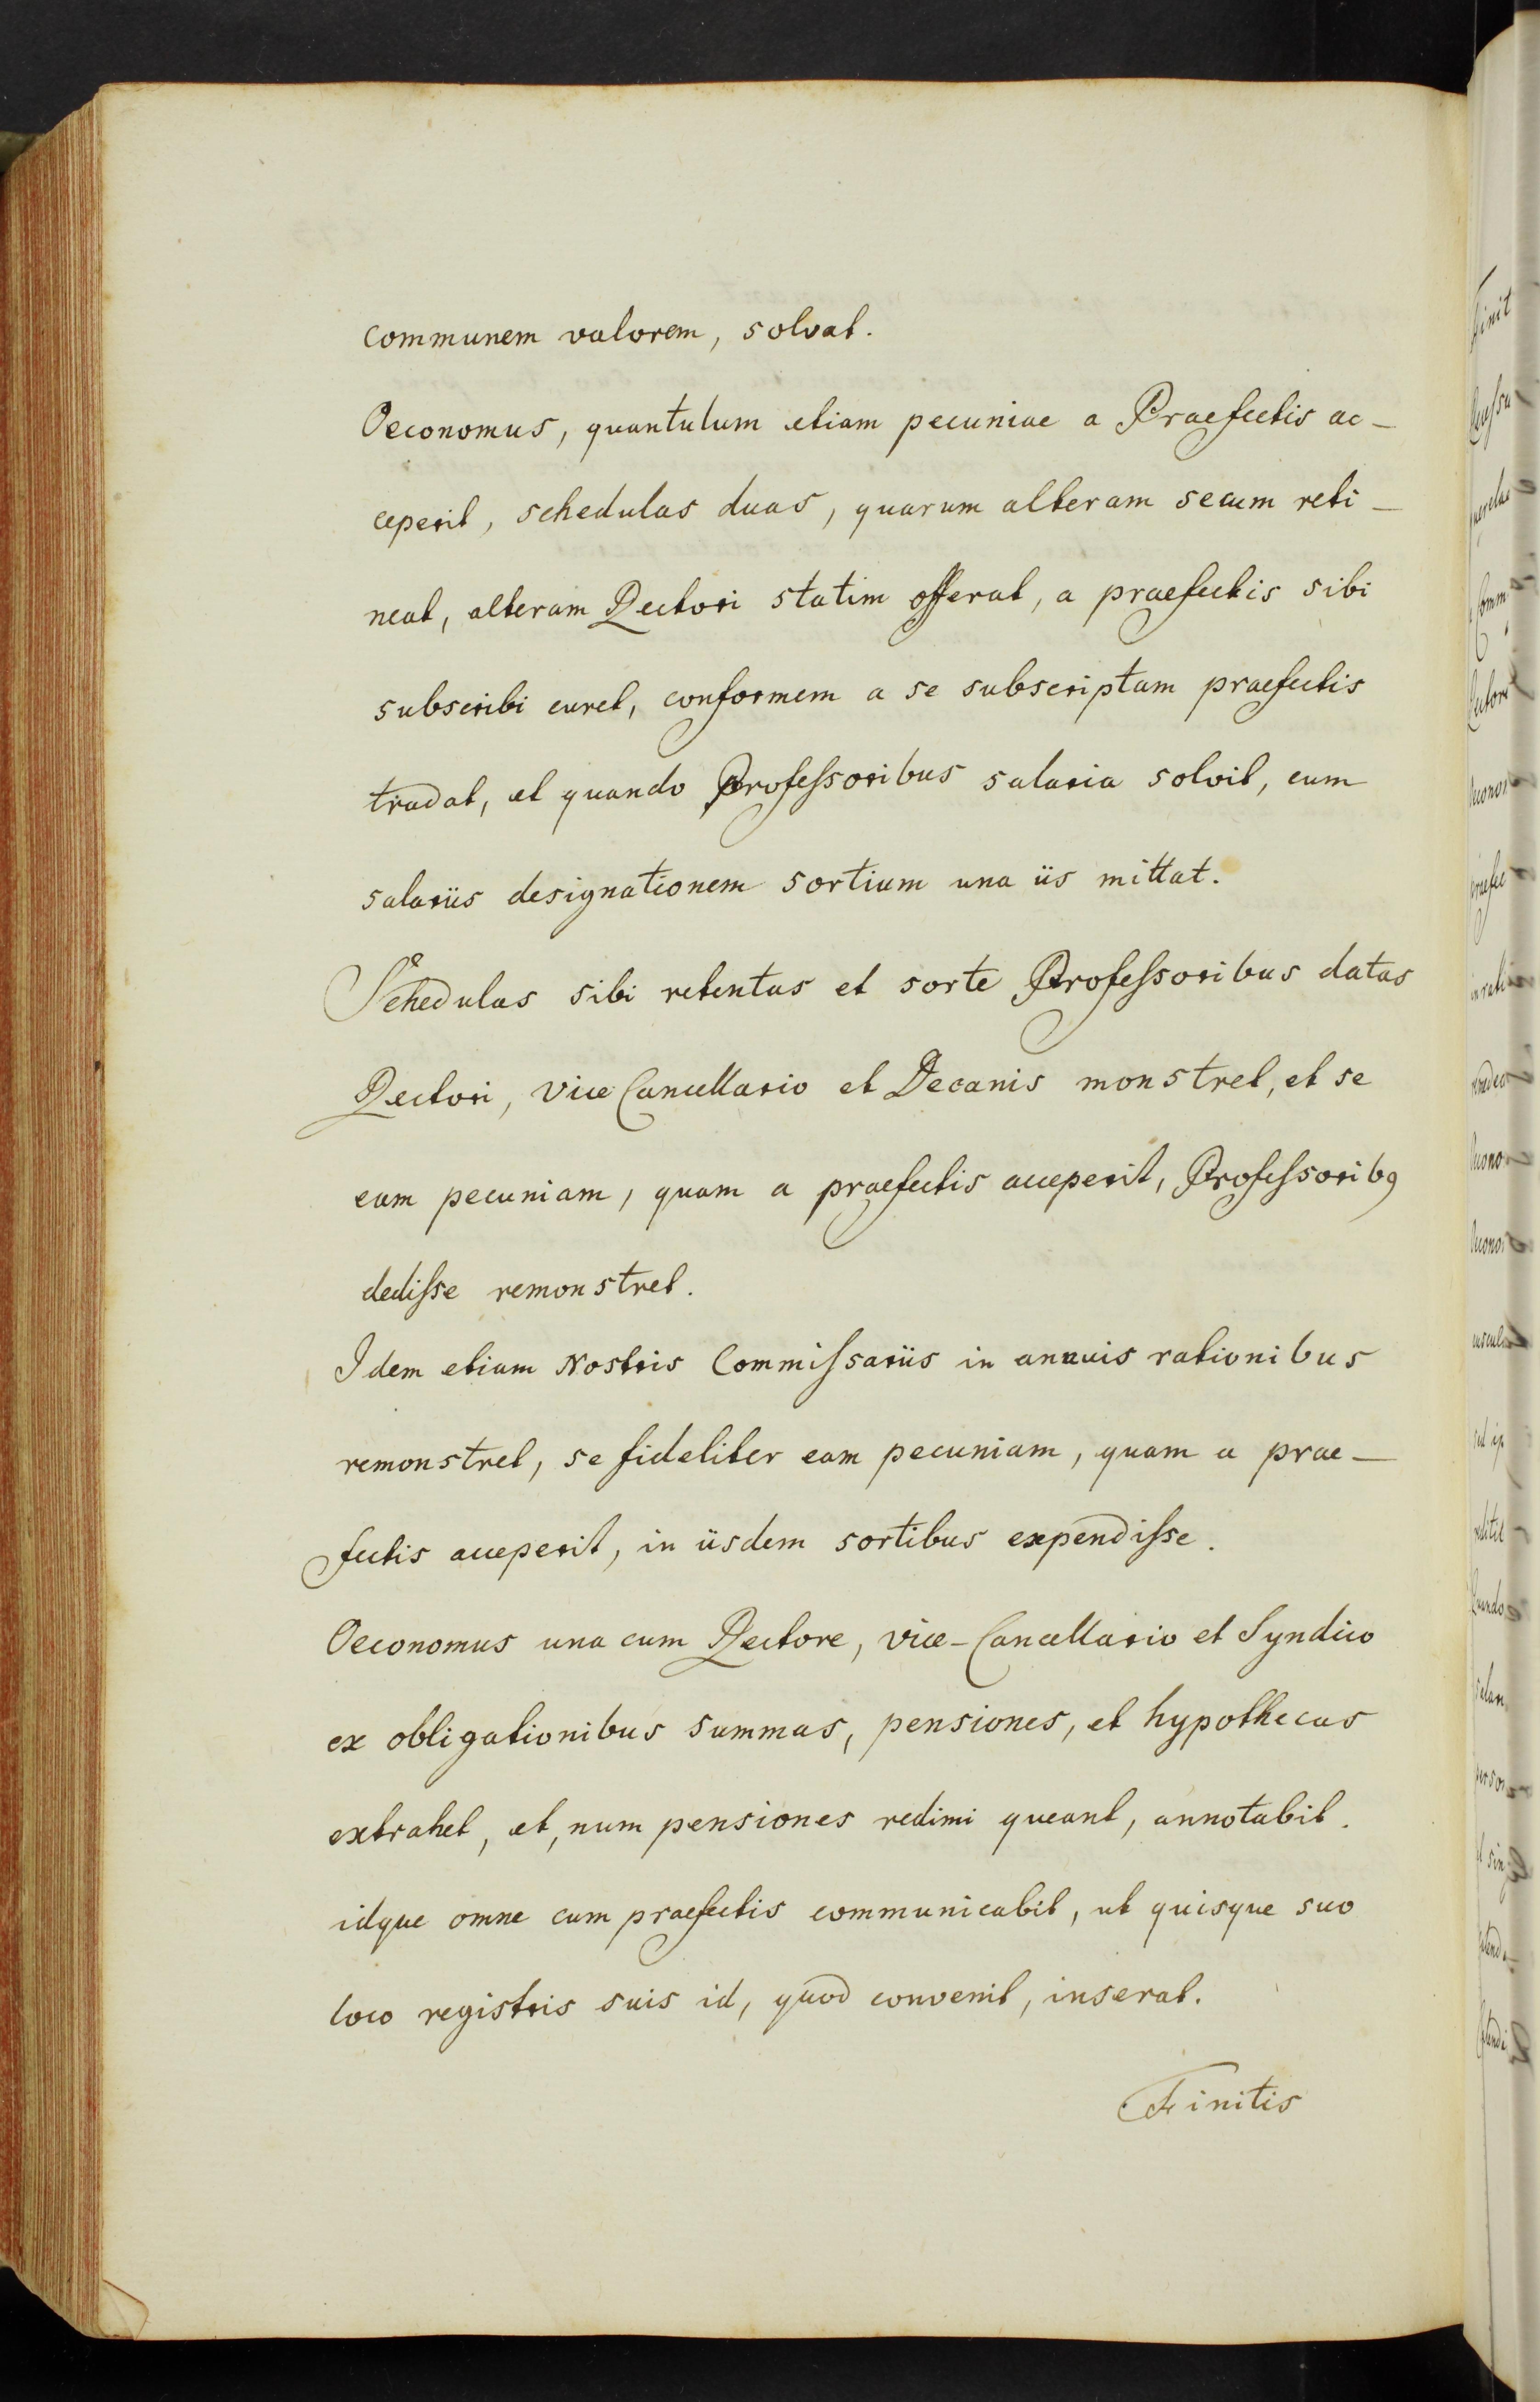 communem valorem, solvat.
Oeconomus, quantulum etiam pecuniae a Praefectis ac-
ceperit, schedulas duas, quarum alteram secum reti-
neat, alteram Rectori statim offerat, a praefectis sibi
subscribi curet, conformem a se subscriptam praefectis
tradat, et quando Professoribus salaria solvit, cum
salariis designationem sortium una iis mittat.
Schedulas sibi retentas et sorte Professoribus datas
Rectori, Vice Cancellario et Decanis monstret, et se
eam pecuniam, quam a praefectis acceperit, Professorib9
dedisse remonstret.
Idem etiam Nostris Commissariis in annuis rationibus
remonstret, se fideliter eam pecuniam, quam a prae-
fectis acceperit, in iisdem sortibus expendisse.
Oeconomus una cum Rectore, vice-Cancellario et Syndico
ex obligationibus summas, pensiones, et hypothecas
extrahet, et, num pensiones redimi queant, annotabit.
idque omne cum praefectis communicabit, ut quisque suo
loco registris suis id, quod convenit, inserat.
Finitis